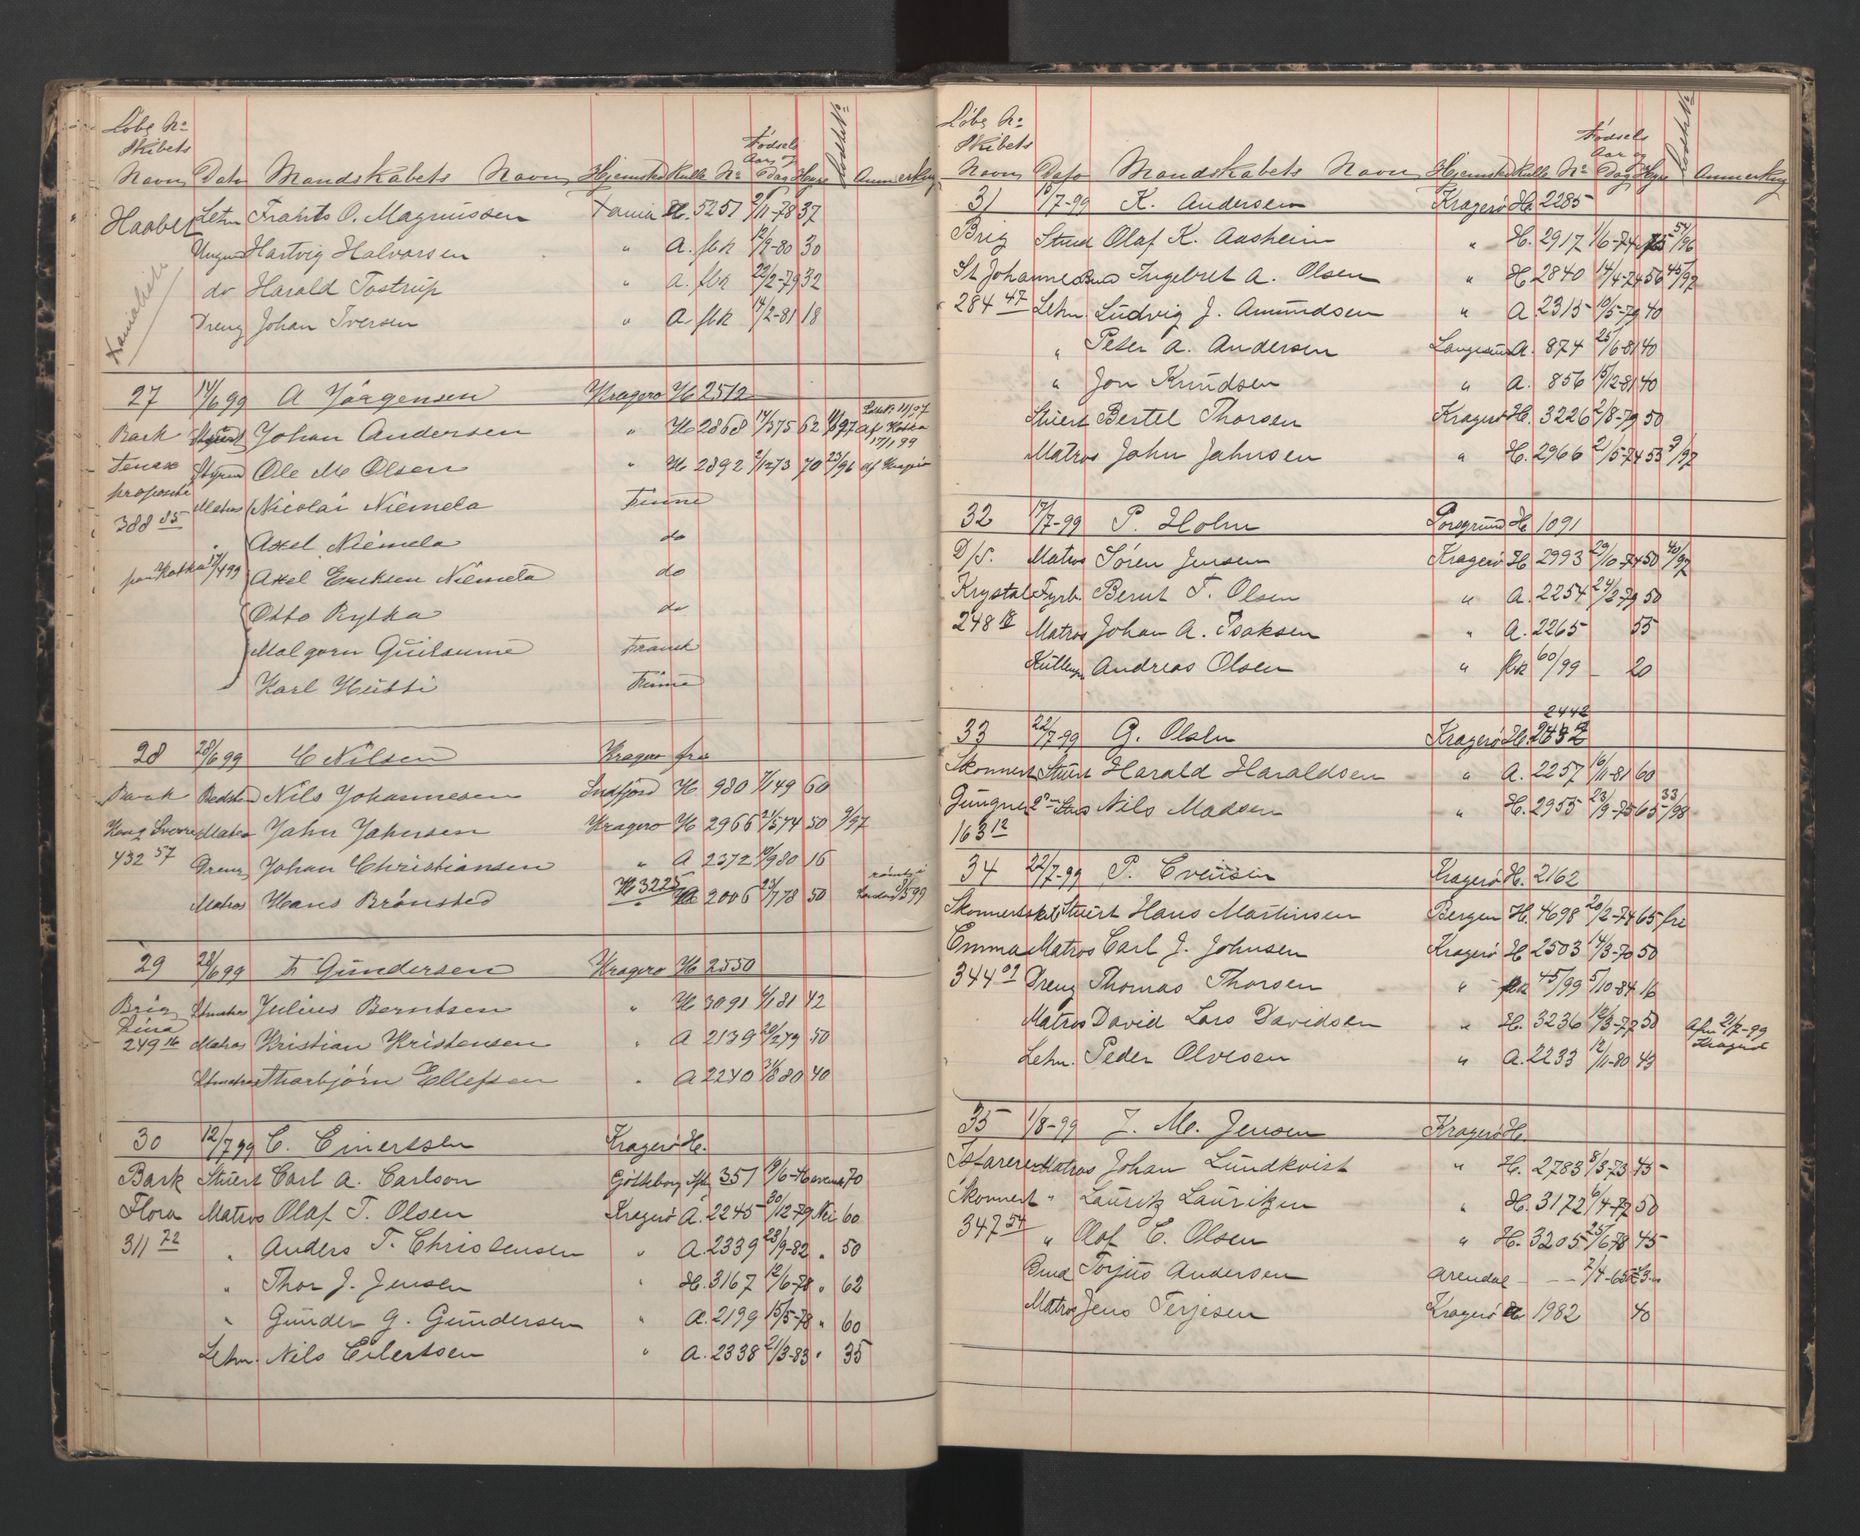 Løbe No
Skibets
Navn Dato Mandskabets Navn Hjemsted Rulle No Fødsels Aar og Dag Hyre Anmerkning
Haabet Letm Frants O. Magnussen 5251 9/11-78 37
Ungm Hartvig Halvorsen " A. fbk 12/9-80 30
do Harald Tostrup " A. fbk 22/2-79 32
Dreng Johan Iversen " A. fbk 14/2-81 18
27 14/6 99 A Jørgensen Kragerø H 2512
Bark Stuert Johan Andersen " H 2868 62 af Kotka 17/1 99
Tenax Styrm Ole M Olsen " H 2892 2/12 73 70 23/96
propositi Matros Nicolai Niemela Finne
388 85
" Axel Niemela do
paa Kotka 17/4 99 Axel Eriksen Niemela do
Otto Rytka do
Malgorn Guilaume Fransk
Karl Hütti Finne
28 28/6 99 C Nilsen Kragerø fra
Bark Bedstm Nils Johannesen Indfjord H 980 7/1 49 60
Kong Sverre Matros John Johnsen Kragerø H 2966 21/5 74 50 9/97
432 57 Dreng Johan Christiansen " A 2372 10/9 80 16
Matros Hans Brønsted H 3225 2006 23/7 78 50
29 28/6 99 F Gundersen Kragerø H 2550
Brig Letmatros Julius Berntsen " H 3091 6/1 81 42
Lina
249 16 Matros Kristian Kristensen " A 2139 20/2 79 50
Letmatros Thorbjørn Ellefsen " A 2240 31/8 80 40
30 12/7 99 C. Einertsen Kragerø H.
Bark Stuert Carl A. Carlson Gøtheborg 351 70
Flora Matros Olaf T. Olsen Kragerø A. 2245 30/12-79 Nei 60
311 72 " Anders T. Christensen " A. 2339 23/9-82 " 50
" Thor J. Jensen " H. 3167 12/6-78 " 62
" Gunder G. Gundersen " A. 2199 15/5-78 " 60
Letm. Nils Eilertsen " A. 2338 21/3-83 " 35
Løbe No
Skibets
Navn Dato Mandskabets Navn Hjemsted Rulle No Fødsels Aar og Dag Hyre Anmerkning
31 15/7-99 K. Andersen Kragerø H. 2285
Brig Stuert Olaf K. Aasheim " H. 2917 1/6-74 54/96
St Johannes Ingebret A. Olsen " H 2840 14/4-74 56 45/97
284 47 Letm. Ludvig J. Amundsen " A 2315 10/5-79 40
" Peter A. Andersen Langesund A. 874 25/6-81 40
" Jon Knudsen " A. 856 15/12-81 40
Stuert Bertel Thorsen Kragerø H. 3226 2/8-79 50
Matros John Johnsen " H. 2966 21/5-74 53 9/97
32 17/7-99 P. Holm Porsgrund H 1091
D/S. Matros Søren Jensen Kragerø H 2993 29/10-74 50 40/97
Krystal Fyrb. Bernt T. Olsen " A. 2254 24/2-79 50
248 Matros Johan A. Isaksen " A. 2265 55
Kullemp Andreas Olsen " fbk 60/99 - 20
2442
33 22/7-99 G. Olsen Kragerø H.
Skonnert Stuert Harald Haraldsen " A. 2257 16/11-81 60
Gungner Nils Madsen " H. 2955 23/9-75 65 33/98
163 12
34 22/7-99 P. Evensen Kragerø H. 2162
Skonnertskib Stuert Hans Martinsen Bergen H. 4698 20/2-74 65 fri
Emma Matros Carl J. Johnsen Kragerø H 2503 14/3-70 50
344 09 Dreng Thomas Thorsen " fbk 45/99 5/10-84 16
Matros David Lars Davidsen " H. 3236 12/3-77 50 Afm 21/7-99 Kragerø
Letm. Peder Olvesen " A. 2233 12/11-80 43
35 1/8-99 J. M. Jensen Kragerø H.
Isfareren Matros Johan Lundkvist " H. 2783 8/3-73 45
Skonnert " Lauritz Lauritzen " H. 3172 6/4-77 50
347 54 " Olaf C. Olsen " H. 3205 25/6 78 45
Torjus Andersen Arendal - - - 2/4-65
Matros Jens Terjesen Kragerø 1982 40